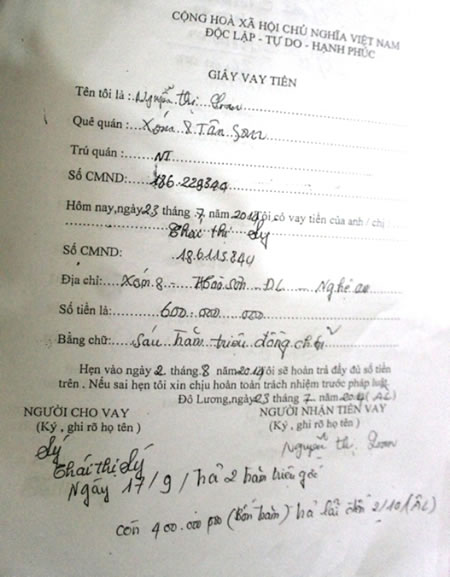 CỘNG HOÀ XÃ HỘI CHỦ NGHĨA VIỆT NAM
ĐỘC LẬP - TỰ DO - HẠNH PHÚC
GIẤY VAY TIỀN
Tên tôi là : Nguyễn Thị Loan
Quê quán : Xóm 8 Tân Sơn
Trú quán : NT
Số CMND: 186.229344
Hôm nay, ngày 23 tháng 7 năm 2011 tôi có vay tiền của anh / chị
Thái Thị Lý
Số CMND: 186.115.841
Địa chỉ: Xóm 8 - Hoà Sơn ĐL Nghệ an
Số tiền là: 600.000.000
Bằng chữ: Sáu trăm triệu đồng chẵn
Hẹn vào ngày 2 tháng 8 năm 2011 tôi sẽ hoàn trả đầy đủ số tiền
trên . Nếu sai hẹn tôi xin chịu hoàn toàn trách nhiệm trước pháp luật
Đô Lương, ngày 23 tháng 7 năm 2011 (AL)
NGƯỜI CHO VAY NGƯỜI NHẬN TIỀN VAY
(Ký , ghi rõ họ tên ) (Ký , ghi rõ họ tên )
Lý
Thái Thị Lý Nguyễn Thị Loan
Ngày 17/9/ trả 2 trăm triệu gốc
còn 400.000.000 (Bốn trăm) trả lãi đến 2/10/(ÂL)